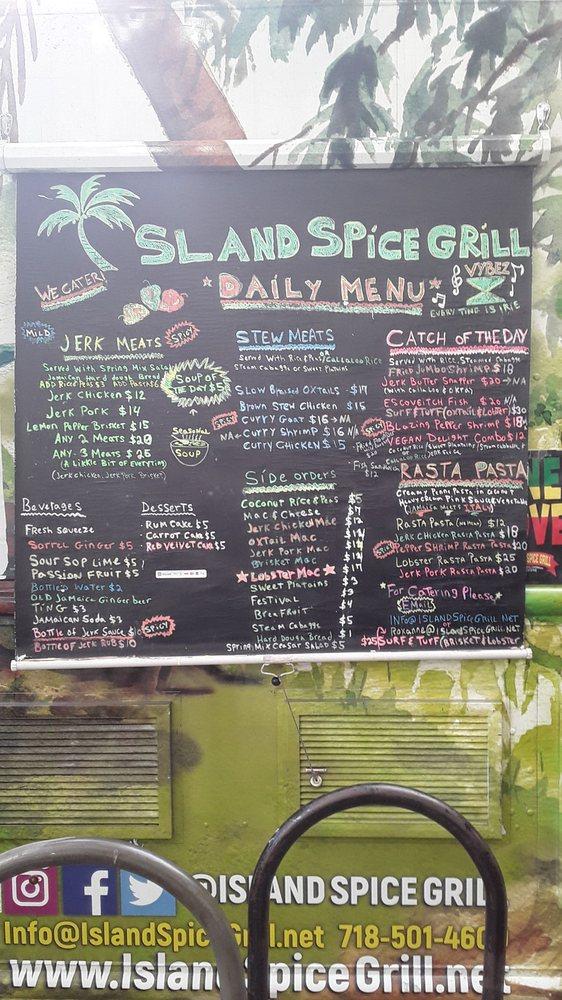 ISLAND SPICE GRILL
WE CATER!
DAILY MENU
VYBEZ
EVERY TING IS IRIE
MILD
JERK MEATS
SPICY
Served with Spring Mix Salad
Jamaican Hard dough Bread
Jerk Chicken $12
Jerk Pork $14
Lemon Pepper Brisket $15
Any 2 Meats $20
Any 3 Meats $25
(A Little Bit of Everyting)
(Jerk chicken, Jerk Pork, Brisket)
SOUP OF DE DAY $5
Seasonal
SOUP
Beverages
Fresh Squeeze
Sorrel Ginger $5
Sour Sop Lime $5
Passion Fruit $5
Bottled Water $2
OLD Jamaica Ginger beer
TING $3
Jamaican Soda $3
Bottle of Jerk Sauce $10
SPICY
Bottle of Jerk Rub $10
Desserts
Rum Cake $5
Carrot Cake $5
Red Velvet Cake $5
STEW MEATS
Steam Cabbage or Sweet Plantains
Slow Braised Oxtails - $17
Brown Stew Chicken $15
SPICY
Curry Goat $16 N/A
N/A Curry Shrimp $16 N/A
Curry Chicken $15
Side orders
Coconut Rice & Peas $5
Mac & Cheese
Jerk Chicken Mac
Oxtail Mac
Jerk Pork Mac
Brisket Mac
Lobster Mac
Sweet Plantains
Festival
Breafruit
Steam Cabbage
Hard Dough Bread
Spring Mix Caesar Salad $5
CATCH OF THE DAY
Fried Jumbo Shrimp $18
Jerk Butter Snapper $20 N/A
(with Callaloo & Okra)
Escoveitch Fish $20 N/A
Surf & Turf (Oxtail & Lobster) $30
SPICY
Blazing Pepper Shrimp $18
Vegan Delight Combo $12
RASTA PASTA
Creamy Penne Pasta in Coconut
(Jamaica Meets ITALY)
Rasta Pasta (no Meat) $12
Jerk Chicken Rasta Pasta $18
SPICY
Pepper Shrimp Rasta Pasta $20
Lobster Rasta Pasta $25
Jerk Pork Rasta Pasta $20
For Catering Please
EMail
INFO@ISLANDSpiceGrill.Net
or
Roxanne@ISLANDSpiceGRILL.NET
$25 SURF & TURF (Brisket & Lobster
@ISLAND SPICE GRILL
Info@IslandSpiceGrill.net 718-501-460
www.IslandSpiceGrill.net